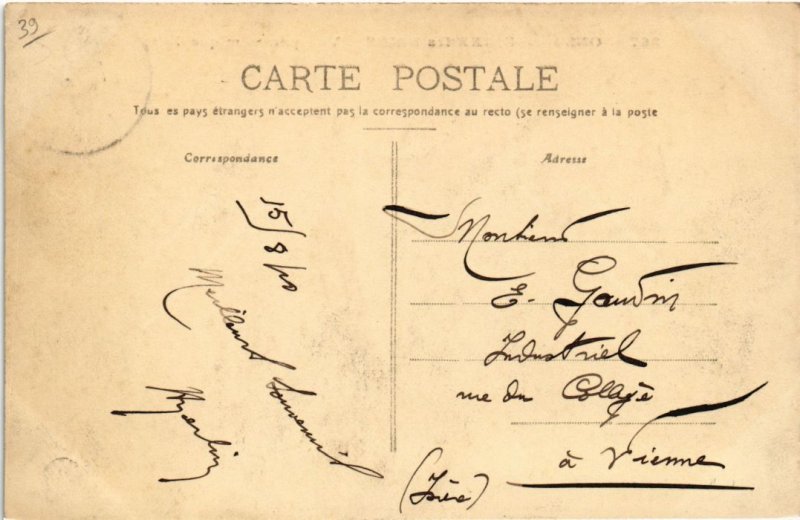 39
CARTE POSTALE
Tous es pays étrangers n'acceptent pas la correspondance au recto (se renseigner à la poste
Correspondance
Adresse
15/8/10
Meilleurs Souvenirs
Monsieur
E. Gaudin
Industriel
rue du Collège
à Vienne
(Isère)